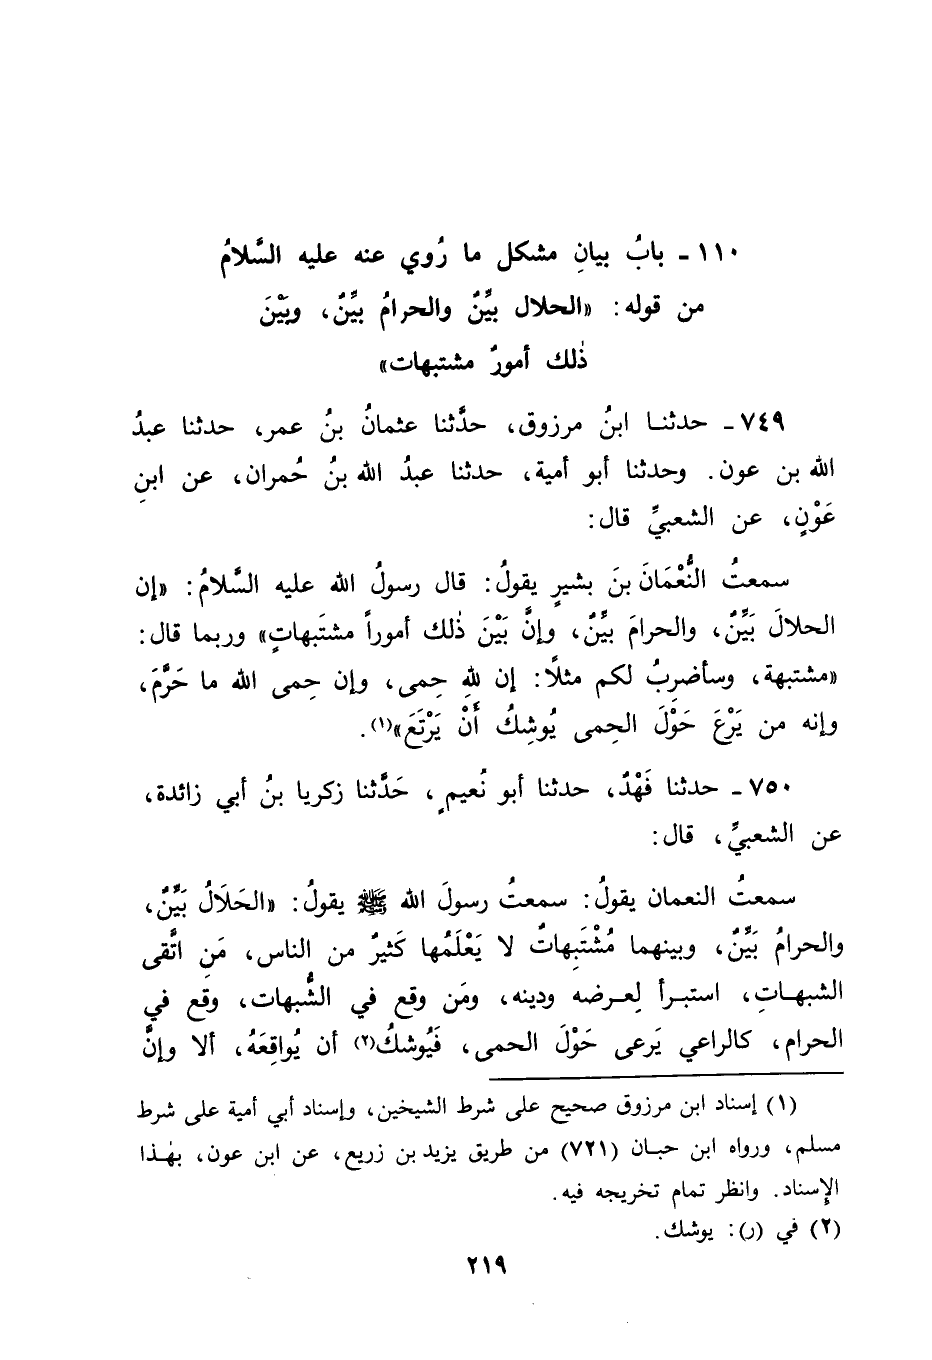 ١١٠ - بابُ بيانِ مشكل ما رُوي عنه عليه السَّلامُ
من قوله: «الحلال بيِّنٌ والحرامُ بيِّنٌ، وبَيْنَ
ذٰلك أمورٌ مشتبهات»
٧٤٩ - حدثنا ابنُ مرزوق، حدَّثنا عثمانُ بنُ عمر، حدثنا عبدُ
الله بن عون. وحدثنا أبو أمية، حدثنا عبدُ الله بنُ حُمران، عن ابنِ
عَوْنٍ، عن الشعبيِّ قال:
سمعتُ النُّعْمَانَ بنَ بشيرٍ يقولُ: قال رسولُ الله عليه السَّلامُ: «إن
الحلالَ بَيِّنٌ، والحرامَ بيِّنٌ، وإنَّ بَيْنَ ذٰلك أموراً مشتَبهاتٍ» وربما قال:
«مشتبهة، وسأضرِبُ لكم مثلًا: إن للهِ حِمى، وإن حِمى الله ما حَرَّمَ،
وإنه من يَرْعَ حَوْلَ الحِمى يُوشِكُ أَنْ يَرْتَعَ»(١).
٧٥٠ - حدثنا فَهْدٌ، حدثنا أبو نُعيمٍ، حَدَّثنا زكريا بنُ أبي زائدة،
عن الشعبيِّ، قال:
سمعتُ النعمان يقولُ: سمعتُ رسولَ الله ﷺ يقولُ: «الحَلَالُ بَيِّنٌ،
والحرامُ بَيِّنٌ، وبينهما مُشْتَبِهاتٌ لا يَعْلَمُها كَثيرٌ من الناس، مَنِ اتَّقى
الشبهاتِ، استبرأ لِعرضه ودينه، ومَن وقع في الشُّبهات، وقع في
الحرام، كالراعي يَرعى حَوْلَ الحمى، فَيُوشكُ(٢) أن يُواقِعَهُ، ألا وإنَّ
(١) إسناد ابن مرزوق صحيح على شرط الشيخين، وإسناد أبي أمية على شرط
مسلم، ورواه ابن حبان (٧٢١) من طريق يزيد بن زريع، عن ابن عون، بهٰذا
الإِسناد. وانظر تمام تخريجه فيه.
(٢) في (ر): يوشك.
٢١٩